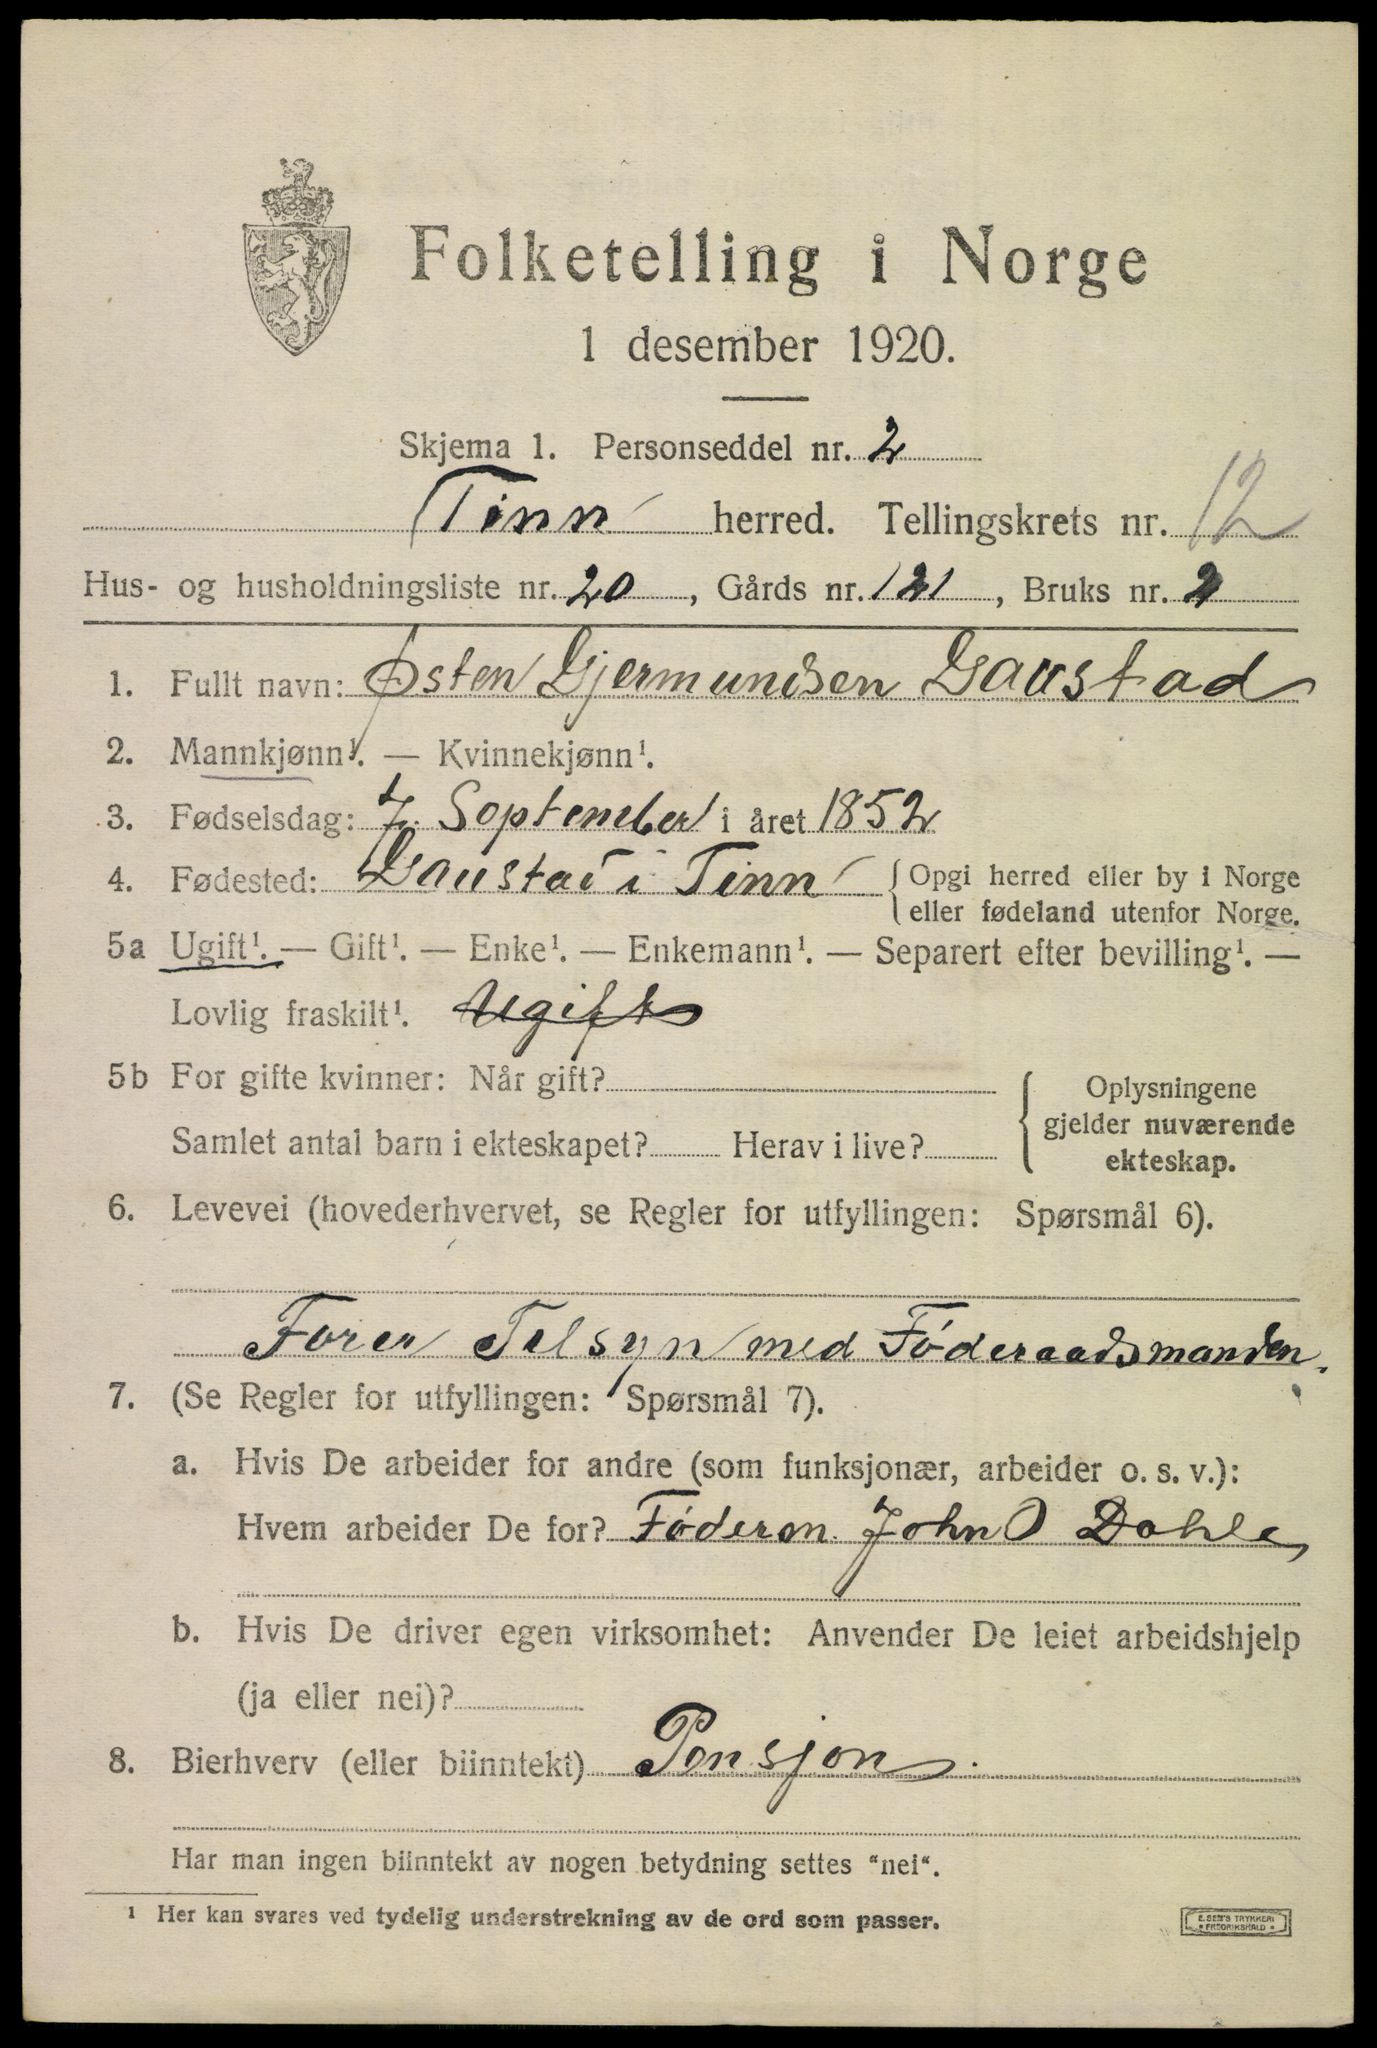 Folketelling i Norge
1 desember 1920.
Skjema 1. Personseddel nr. 2
Tinn herred. Tellingskrets nr. 12
Hus- og husholdningsliste nr. 20, Gårds nr. 121, Bruks nr. 2
1. Fullt navn: Østen Gjermundsen Gaustad
2. Mannkjønn¹. — Kvinnekjønn¹.
3. Fødselsdag: 7. September i året 1852
4. Fødested: Gaustad i Tinn { Opgi herred eller by i Norge
eller fødeland utenfor Norge.
5a Ugift¹. — Gift¹. — Enke¹. — Enkemann¹. — Separert efter bevilling¹. —
Lovlig fraskilt¹. Ugift
5b For gifte kvinner: Når gift?
Samlet antal barn i ekteskapet? Herav i live?
{ Oplysningene
gjelder nuværende
ekteskap.
6. Levevei (hovederhvervet, se Regler for utfyllingen: Spørsmål 6).
Forer Telsyn med Føderaadsmanden.
7. (Se Regler for utfyllingen: Spørsmål 7).
a. Hvis De arbeider for andre (som funksjonær, arbeider o. s. v.):
Hvem arbeider De for? Føderm. John O Dahle
b. Hvis De driver egen virksomhet: Anvender De leiet arbeidshjelp
(ja eller nei)?
8. Bierhverv (eller biinntekt) Pensjon.
Har man ingen biinntekt av nogen betydning settes "nei".
¹ Her kan svares ved tydelig understrekning av de ord som passer.
E. SEM'S TRYKKERI
* FREDRIKSHALD *